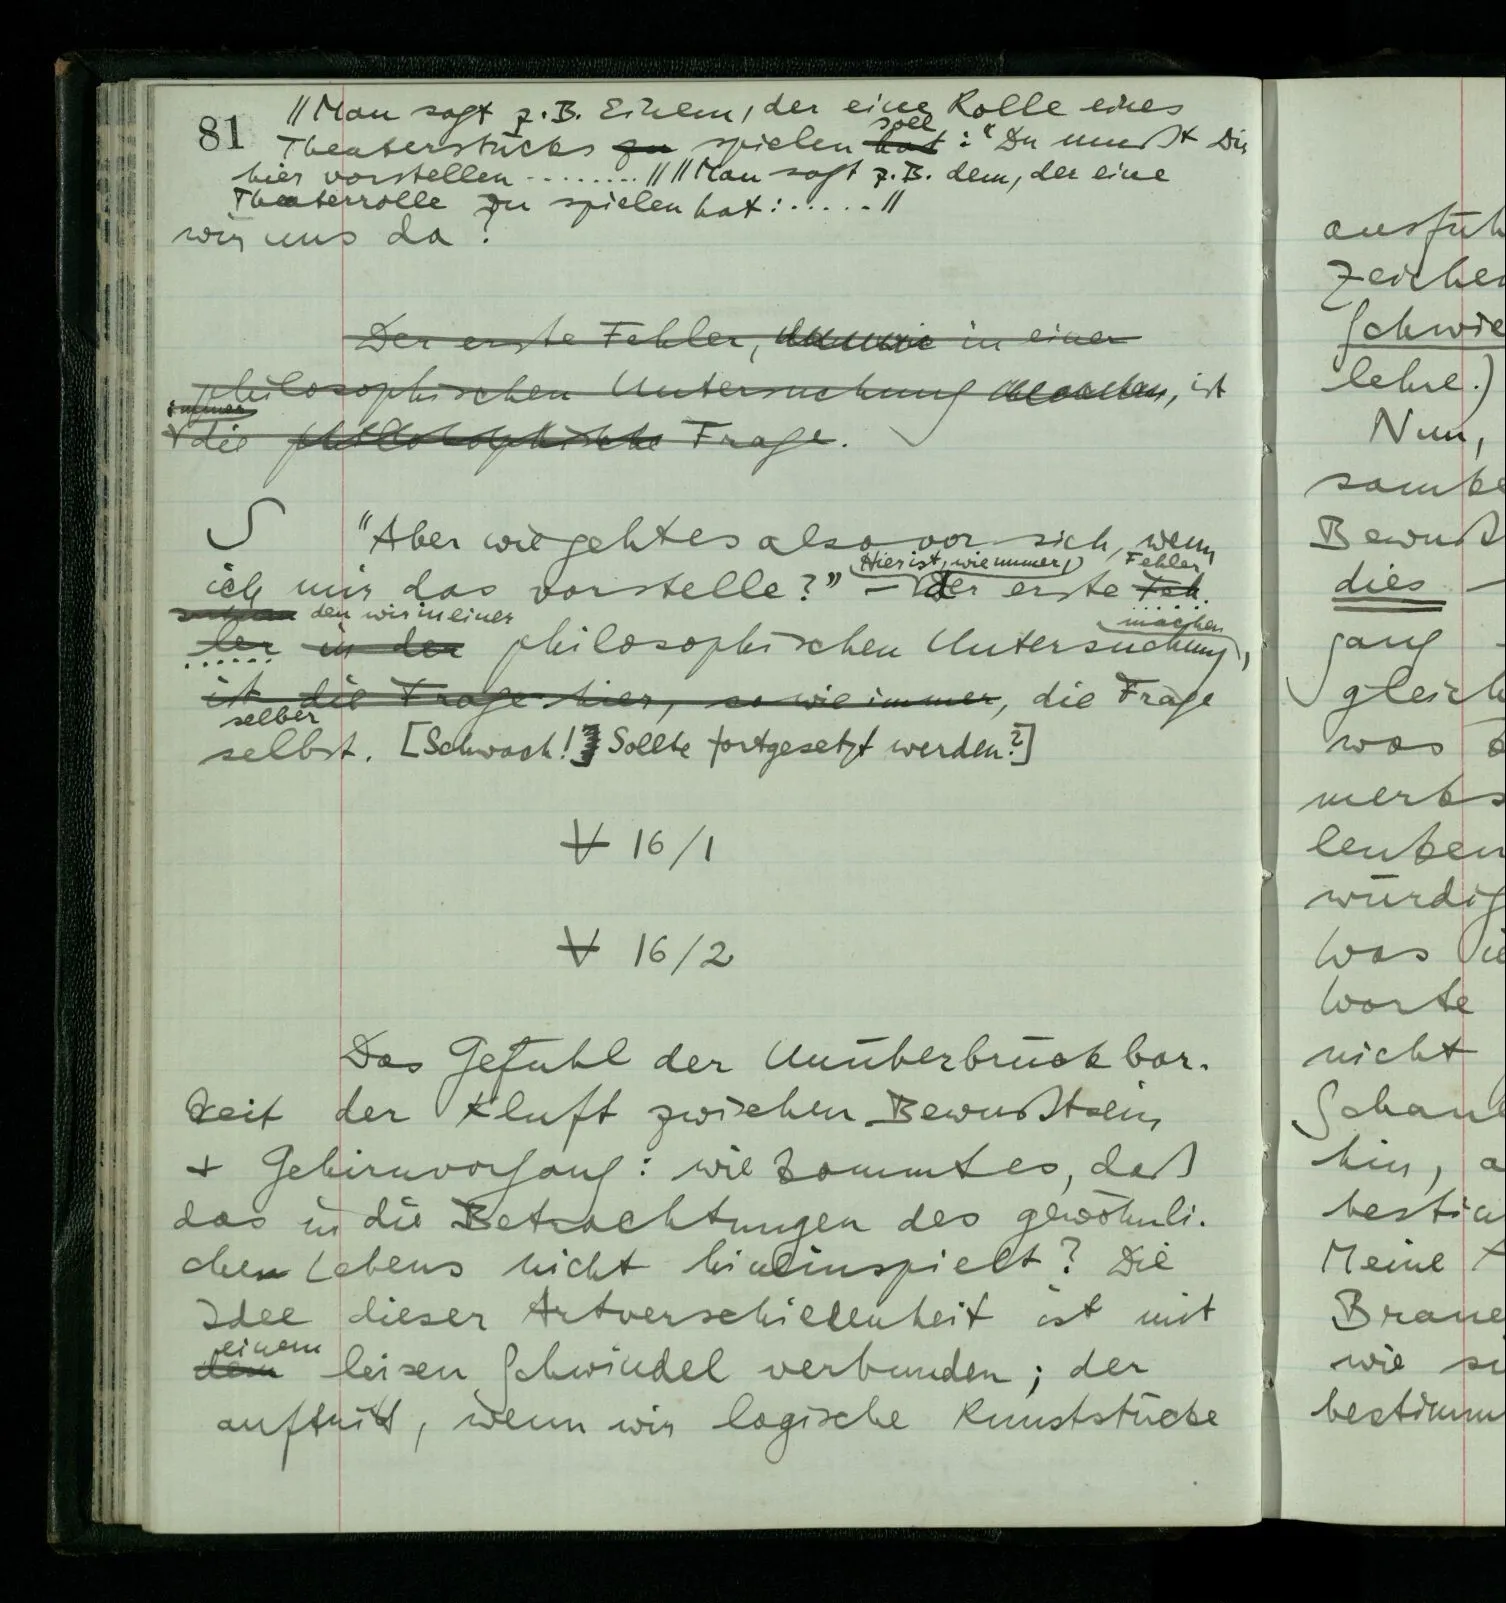 81
// Man sagt z.B. Einem, der eine Rolle eines
soll
Theaterstücks zu spielen hat : "Du mußt Dir
hier vorstellen ........ // // Man sagt z.B. dem, der eine
Theaterrolle zu spielen hat : ...... //
wir uns da?
Der erste Fehler, in einer
philosophischen Untersuchung machen, ist
immer
die philosophische Frage.
S "Aber wie geht es also vor sich, wenn
Hier ist, wie immer, Fehler,
ich mir das vorstelle?" – der erste Feh-
den wir in einer
machen
ler in der philosophischen Untersuchung,
ist die Frage hier, so wie immer, die Frage
selber
selbst. [Schwach! Sollte fortgesetzt werden?]
V 16/1
V 16/2
Das Gefühl der Unüberbrückbar-
keit der Kluft zwischen Bewußtsein
+ Gehirnvorgang: wie kommt es, daß
das in die Betrachtungen des gewöhnli-
chen Lebens nicht hineinspielt? Die
Idee dieser Artverschiedenheit ist mit
einem
dem leisen Schwindel verbunden; der
auftritt, wenn wir logische Kunststücke
ausfüh
Zeichen
Schwie
lehre.)
Nun,
Bewußt
dies –
gang –
gleich
was
merks
lenken
würdig
was
Worte
nicht
Schau
hin, a
bestim
Meine
Braue
wie
bestimm